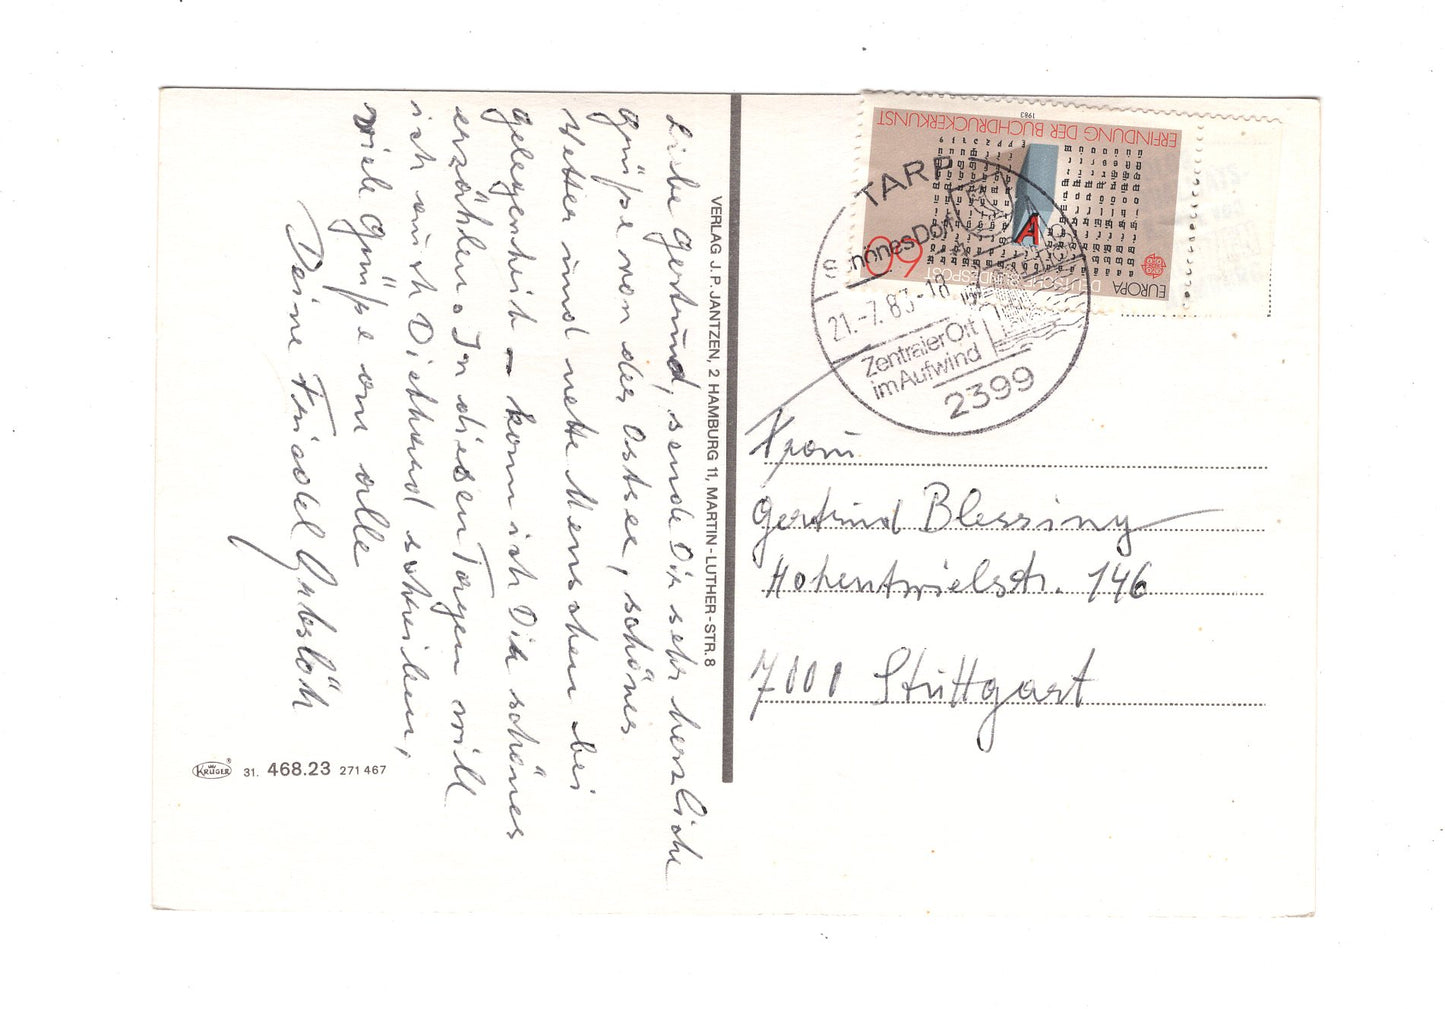 Liebe Gertrud, sende Dir sehr herzliche
Grüße von der Ostsee, schönes
Wetter und nette Menschen bei
gelegenheit – kann ich Dir schönes
erzählen. In diesen Tagen will
ich auch Diethard schreiben,
viele Grüße an alle
Deine Friedel
VERLAG J. P. JANTZEN, 2 HAMBURG 11, MARTIN-LUTHER-STR. 8
KRÜGER ® 31. 468.23 271 467
ERFINDUNG DER BUCHDRUCKERKUNST
1983
A
60
DEUTSCHE BUNDESPOST
EUROPA
TARP
Schönes Dorf
21.-7.83-18
Zentraler Ort
im Aufwind
2399
Frau
Gertrud Blessing
Hohentwielstr. 146
7000 Stuttgart